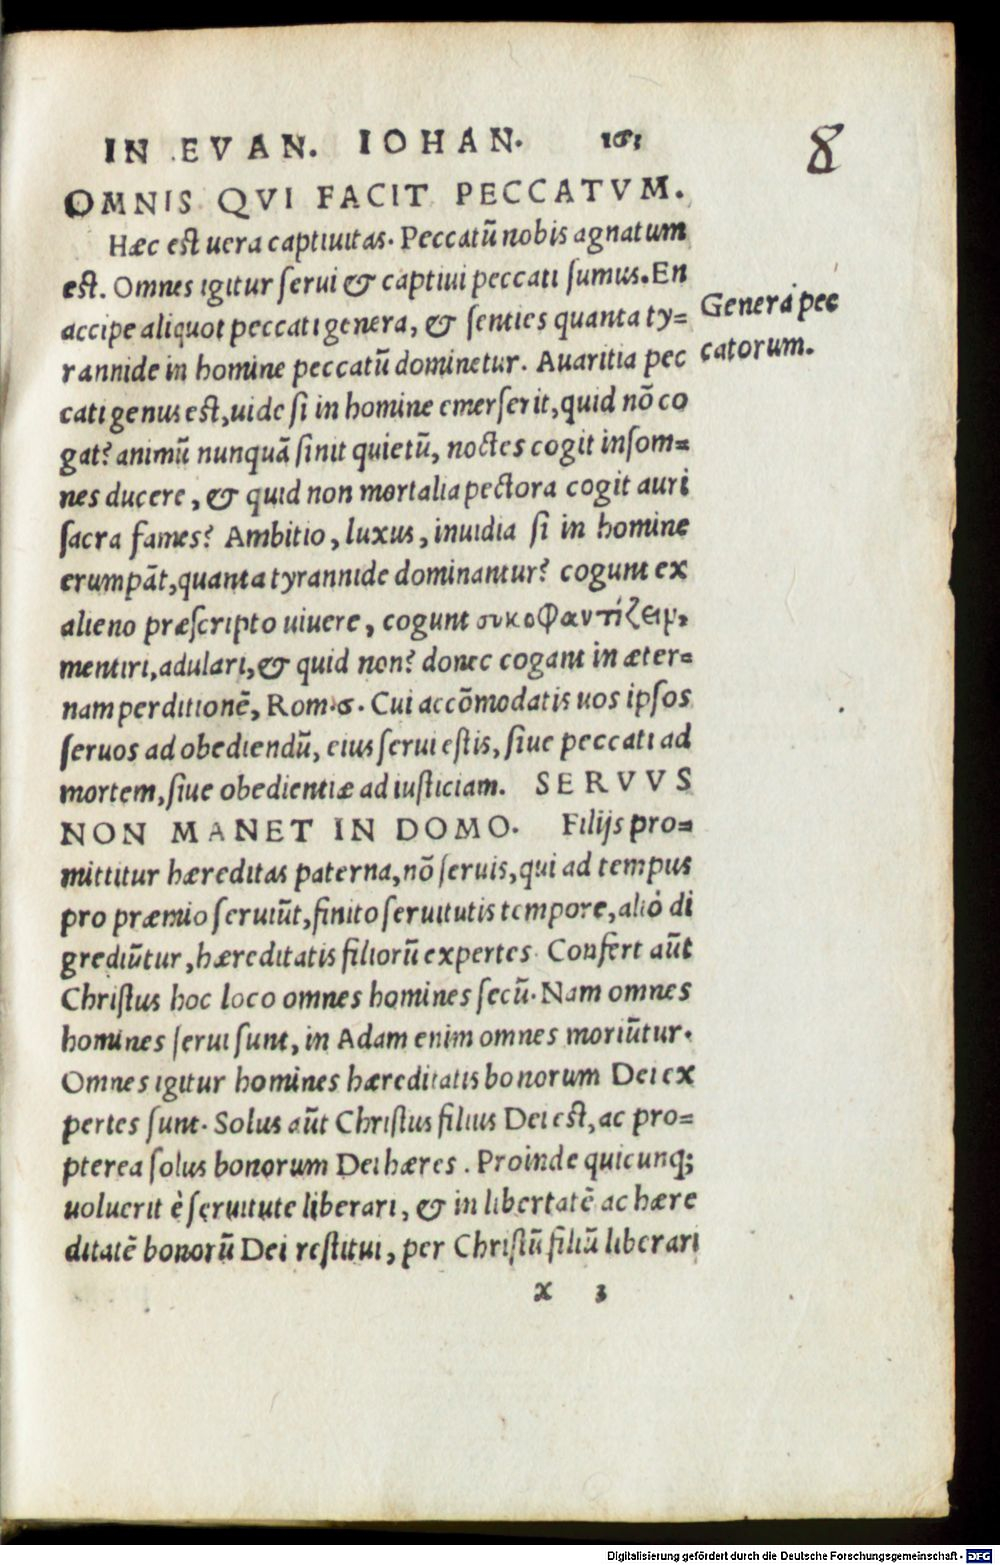 IN EVAN. IOHAN. 163
8
OMNIS QVI FACIT PECCATVM.
Hæc est uera captiuitas. Peccatũ nobis agnatum
est. Omnes igitur serui & captiui peccati sumus. En
accipe aliquot peccati genera, & senties quanta ty=
rannide in homine peccatũ dominetur. Auaritia pec
cati genus est, uide si in homine emerserit, quid nõ co
gat? animũ nunquã sinit quietũ, noctes cogit insom=
nes ducere, & quid non mortalia pectora cogit auri
sacra fames? Ambitio, luxus, inuidia si in homine
erumpãt, quanta tyrannide dominantur? cogunt ex
alieno præscripto uiuere, cogunt συκοφαντίζειν,
mentiri, adulari, & quid non? donec cogant in æter=
nam perditionẽ, Rom. 6. Cui accõmodatis uos ipsos
seruos ad obediendũ, eius serui estis, siue peccati ad
mortem, siue obedientiæ ad iusticiam. SERVVS
NON MANET IN DOMO. Filijs pro=
mittitur hæreditas paterna, nõ seruis, qui ad tempus
pro præmio seruiũt, finito seruitutis tempore, aliò di
grediũtur, hæreditatis filiorũ expertes. Confert aũt
Christus hoc loco omnes homines secũ. Nam omnes
homines serui sunt, in Adam enim omnes moriũtur.
Omnes igitur homines hæreditatis bonorum Dei ex
pertes sunt. Solus aũt Christus filius Dei est, ac pro=
pterea solus bonorum Dei hæres. Proinde quicunq;
uoluerit è seruitute liberari, & in libertatẽ ac hære
ditatẽ bonorũ Dei restitui, per Christũ filiũ liberari
x 3
Genera pec
catorum.
Digitalisierung gefördert durch die Deutsche Forschungsgemeinschaft - DFG